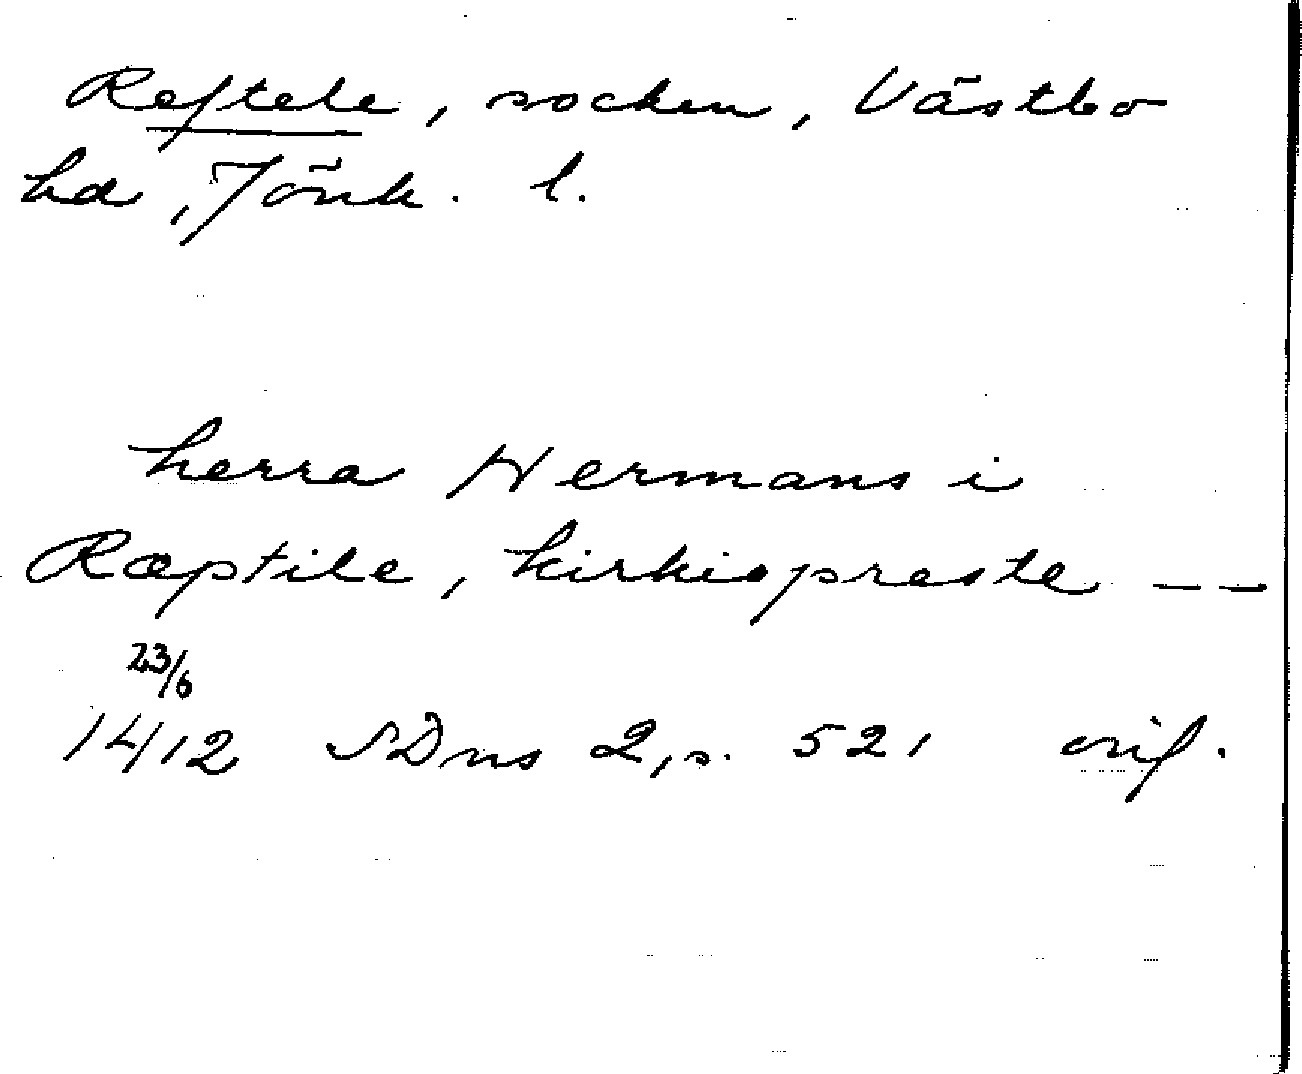 Reftele, socken, Västbo
hd, Jönk. l.
herra Hermans i
Ræptile, kirkiopreste — —
23/6
1412 SDns 2, s. 521 orig.